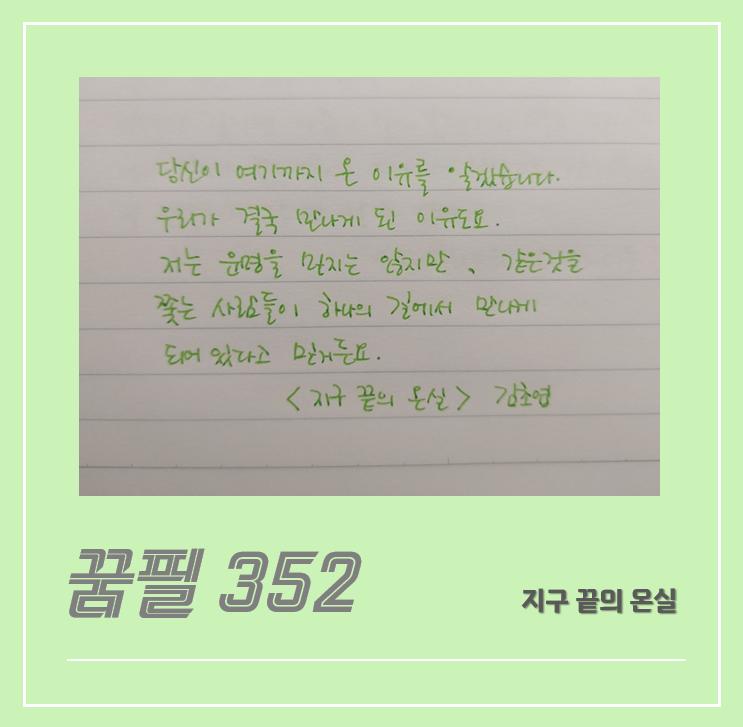 당신이 여기까지 온 이유를 알겠습니다.
우리가 결국 만나게 된 이유도요.
저는 운명을 믿지는 않지만, 같은것을
쫓는 사람들이 하나의 길에서 만나게
되어 있다고 믿거든요.
<지구 끝의 온실> 김초엽
꿈필 352
지구 끝의 온실